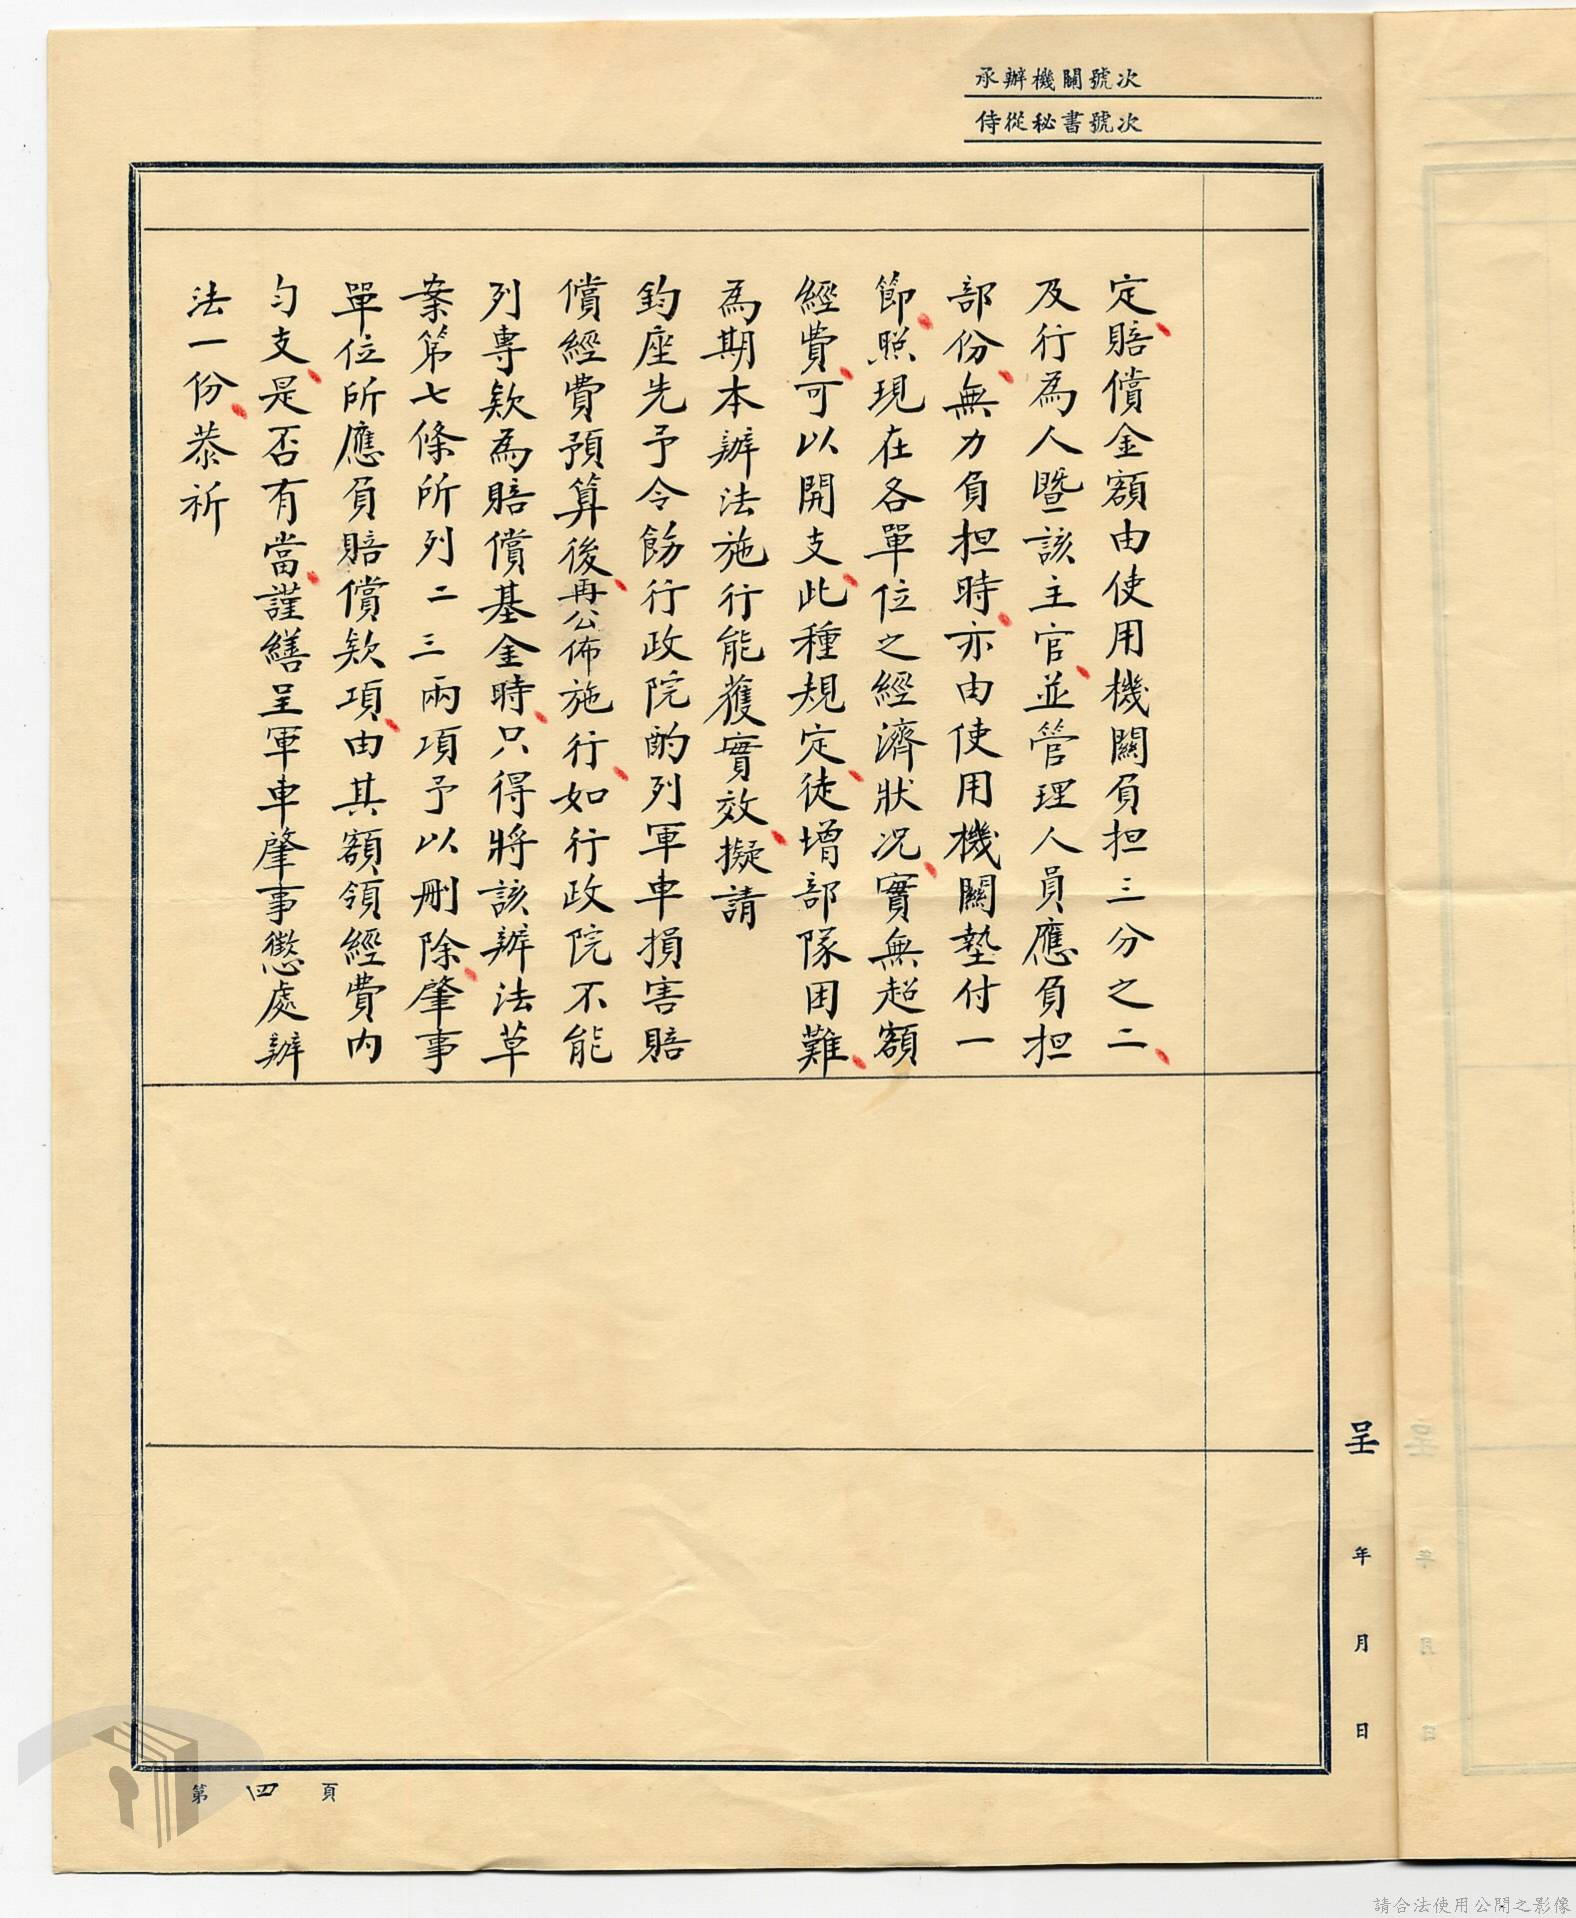 承辦機關號次
侍從秘書號次
定、賠償金額由使用機關負担三分之二、
及行為人暨該主官、並管理人員應負担
部份、無力負担時、亦由使用機關墊付一
節、照現在各單位之經濟狀況、實無超額
經費、可以開支、此種規定、徒增部隊困難、
為期本辦法施行能獲實效、擬請
鈞座先予令飭行政院酌列軍車損害賠
償經費預算後、再公佈施行、如行政院不能
列專欵為賠償基金時、只得將該辦法草
案第七條所列二三兩項予以刪除、肇事
單位所應負賠償欵項、由其額領經費內
勻支、是否有當、謹繕呈軍車肇事懲處辦
法一份、恭祈
呈
年
月
日
第四頁
請合法使用公開之影像